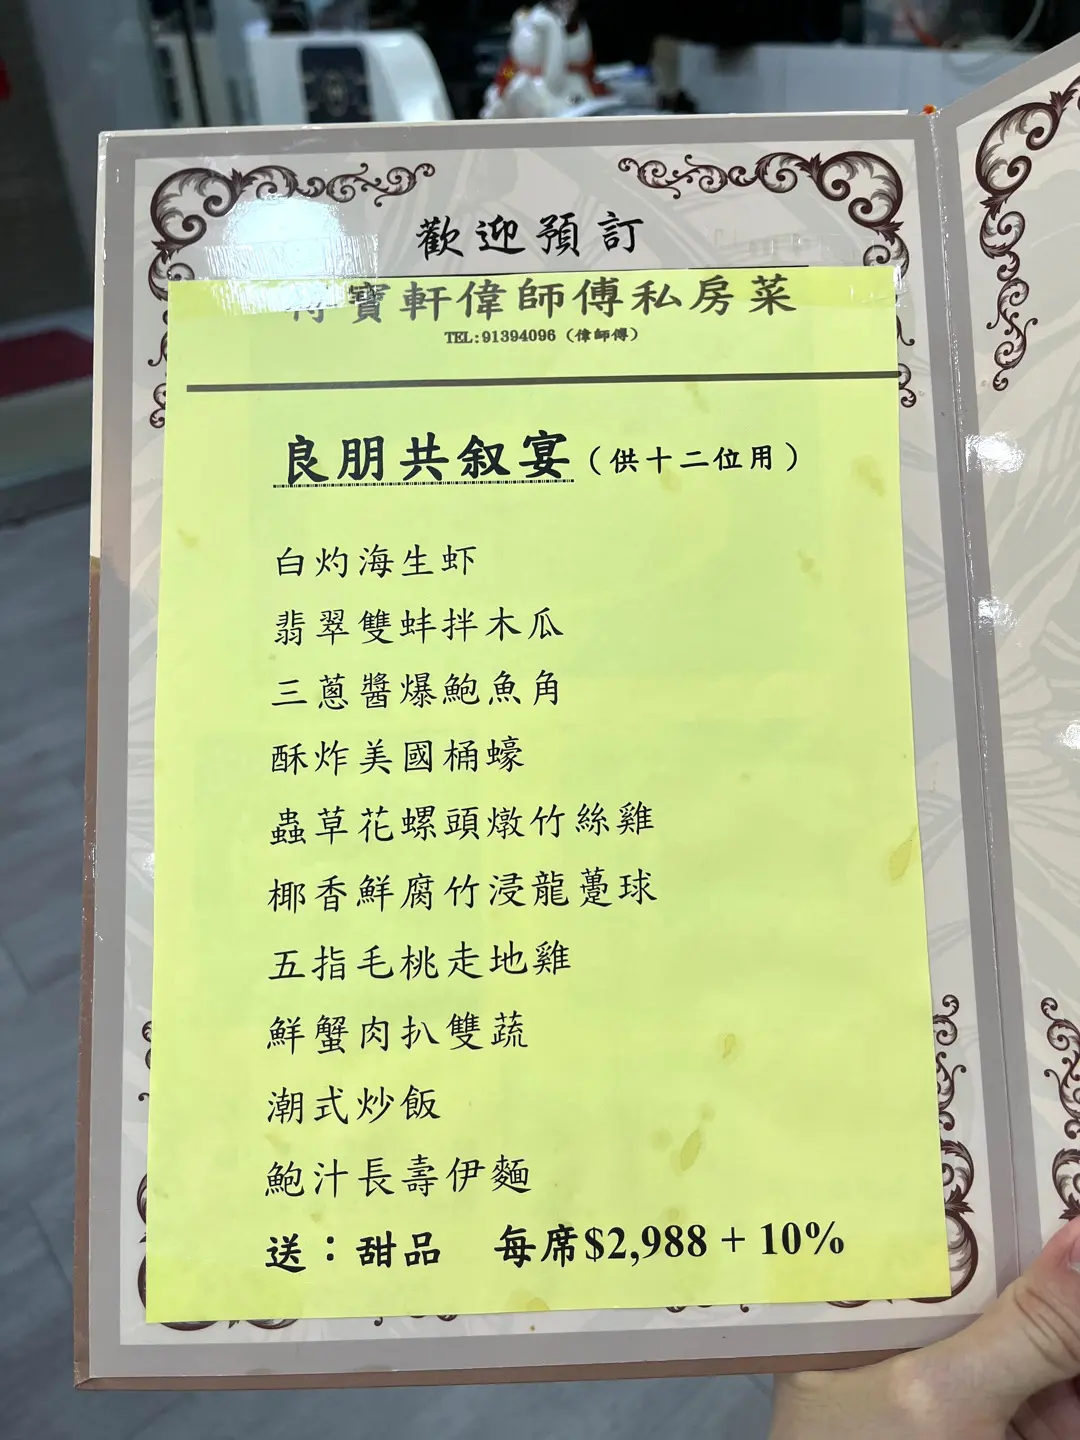 歡迎預訂
寶軒偉師傅私房菜
TEL:91394096（偉師傅）
良朋共叙宴（供十二位用）
白灼海生虾
翡翠雙蚌拌木瓜
三蔥醬爆鮑魚角
酥炸美國桶蠔
蟲草花螺頭燉竹絲雞
椰香鮮腐竹浸龍躉球
五指毛桃走地雞
鮮蟹肉扒雙蔬
潮式炒飯
鮑汁長壽伊麵
送：甜品 每席$2,988 + 10%